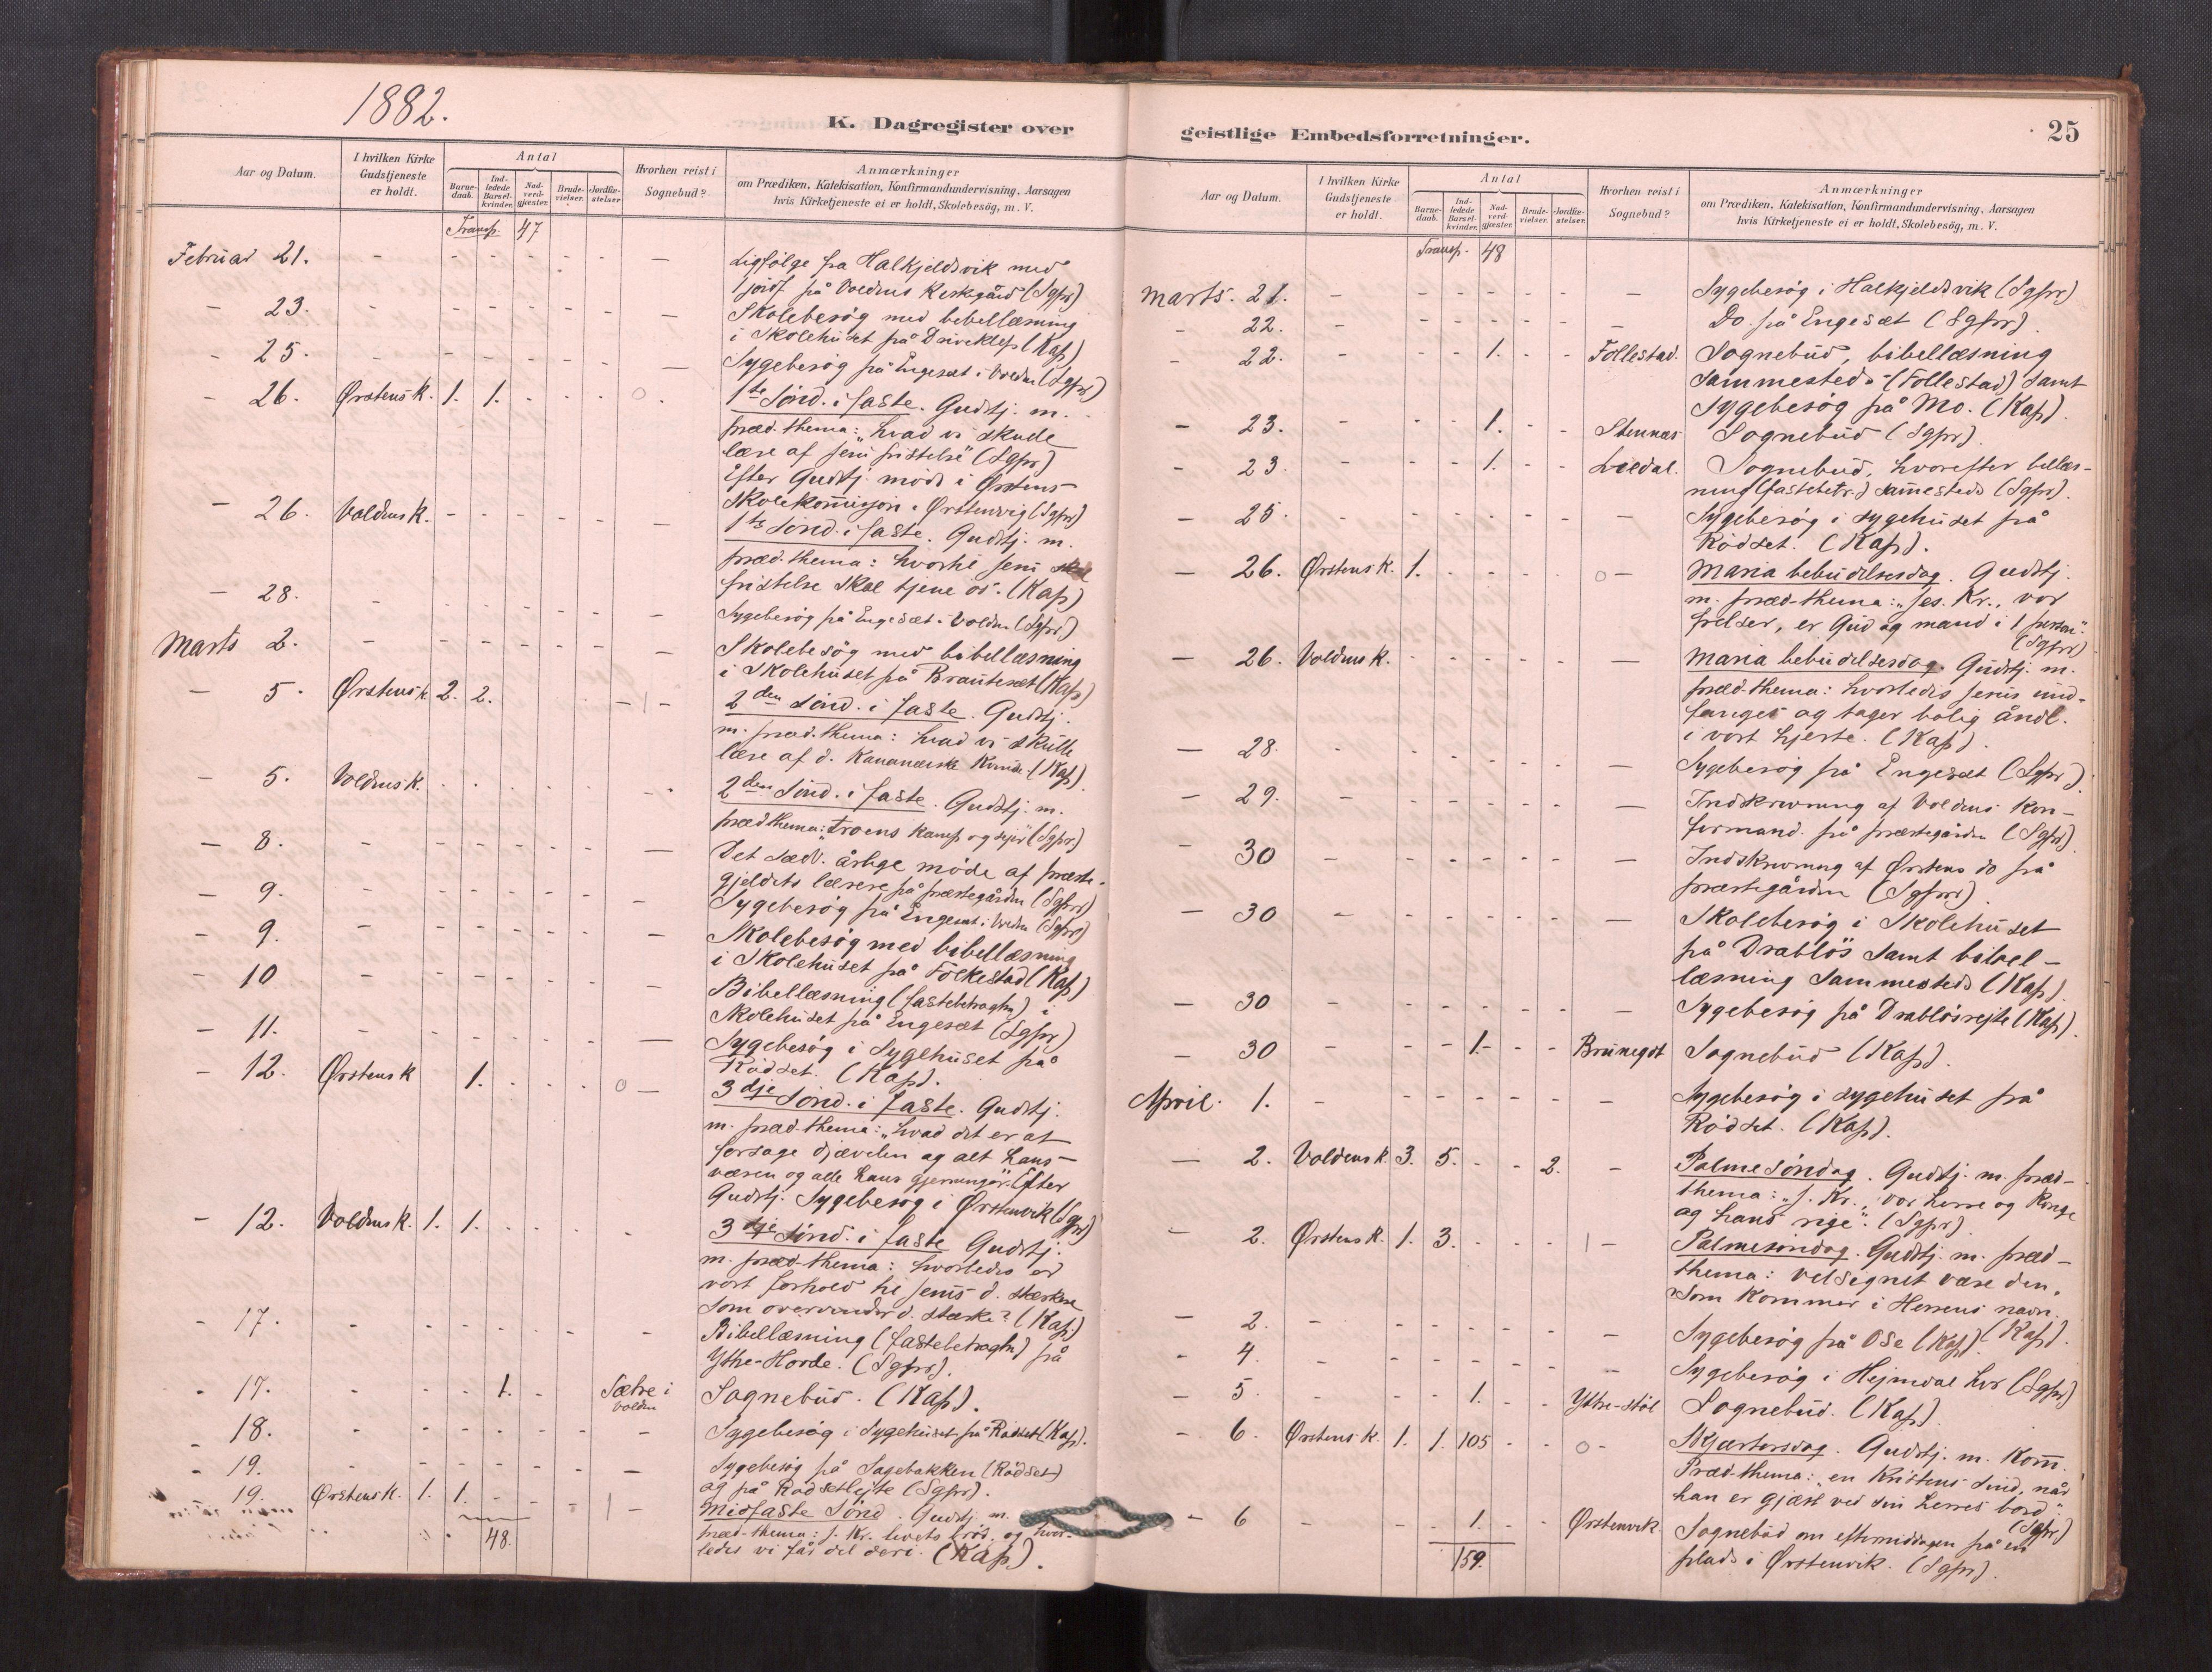 1882.
K. Dagregister over
Aar og Datum.
I hvilken Kirke
Gudstjeneste
er holdt.
Antal
Barne-
daab.
Ind-
ledede
Barsel-
kvinder.
Nad-
verd-
gjæster.
Brude-
vielser.
Jordfæ-
stelser
Hvorhen reist i
Sognebud?
Anmærkninger
om Prædiken, Katekisation, Konfirmandundervisning, Aarsagen
hvis Kirketjeneste ei er holdt, Skolebesög, m. V.
Transp. 47
Februar 21. - - - - - - - Ligfølge fra Halkjeldsvik med
1 jordf. på Voldens Kirkegård (Sgpr)
- 23. - - - - - - - Skolebesøg med bibellæsning
i Skolehuset på (Kap)
- 25. - - - - - - - Sygebesøg på Engeset i Volden (Sgpr)
- 26. Ørstens k. 1. 1. - - - 0. 1ste Sønd. i faste. Gudstj. m.
præd. thema: "hvad vi skulle
lære af Jesu fristelse" (Sgpr)
Efter Gudstj. møde i Ørstens
Skolekommission i Ørstenvig (Sgpr)
- 26. Voldens k. - - - - - - 1ste Sønd. i faste. Gudstj. m.
præd. thema: hvortil Jesu
fristelse skal tjene os. (Kap)
- 28. - - - - - - - Sygebesøg på Engeset i Volden (Sgpr)
Marts 2. - - - - - - - Skolebesøg med bibellæsning
i Skolehuset på Brautesæt (Kap)
- 5. Ørstens k. 2. 2. - 1 - 2den Sønd. i faste. Gudstj.
m. præd. thema: hvad vi skulle
lære af d. Kananæiske Kvinde (Kap)
- 5. Voldens k. - - - - - - 2den Sønd. i faste. Gudstj. m.
præd. thema: "troens kamp og sejer" (Sgpr)
- 8. - - - - - - - Det sædv. årlige møde af præste-
gjeldets lærere på præstegården (Sgpr)
- 9. - - - - - - - Sygebesøg på Engeset i Volden (Sgpr)
- 9. - - - - - - - Skolebesøg med bibellæsning
i Skolehuset på Folkestad (Kap)
- 10 - - - - - - - Bibellæsning (fastebetragtn) i
Skolehuset på Engesæt (Sgpr)
- 11. - - - - - - - Sygebesøg i Sygehuset på
Rødset. (Kap).
- 12. Ørstens k 1. - - - 0 - 3dje Sønd. i faste. Gudstj.
m. præd. thema: "hvad det er at
forsage djævelen og alt hans
væsen og alle hans gjerninger". Efter
Gudstj. Sygebesøg i Ørstenvik (Sgpr)
- 12. Voldens k. 1. 1. - - - - 3dje Sønd. i faste Gudstj.
m. præd. thema: hvorledes er
vort forhold til Jesus d. stærkere
som overvinder d. stærke? (Kap)
- 17. - - - - - - - Bibellæsning (fastebetragtn) på
Ytre-Hovde. (Sgpr).
- 17. - - - 1. - Sætre i
Volden
Sognebud. (Kap).
- 18. - - - - - - - Sygebesøg i Sygehuset på Rødset (Kap).
- 19. - - - - - - - Sygebesøg på Sagebakken (Rødset)
og på Rødsetlejte (Sgpr).
19. Ørstens k. 1. 1. - - - 1 - Midfaste Sønd. Gudstj. m.
præd. thema: J. Kr. livets brød, og hvor-
ledes vi får del deri. (Kap).
48.
geistlige Embedsforretninger.
25
Aar og Datum.
I hvilken Kirke
Gudstjeneste
er holdt.
Antal
Barne-
daab.
Ind-
ledede
Barsel-
kvinder.
Nad-
verd-
gjæster.
Brude-
vielser.
Jordfæ-
stelser.
Hvorhen reist i
Sognebud?
Anmærkninger
om Prædiken, Katekisation, Konfirmandundervisning, Aarsagen
hvis Kirketjeneste ei er holdt, Skolebesög, m. V.
Transp. 48
Marts. 21. - - - - - - - Sygebesøg i Halkjeldsvik (Sgpr)
- 22. - - - - - - - Do. på Engeset (Sgpr).
- 22. - - - 1. - - Follestad. Sognebud, bibellæsning
sammesteds (Follestad) samt
Sygebesøg på Mo. (Kap).
- 23. - - - 1. - - Stennæs Sognebud (Sgpr).
- 23 - - - 1. - - Sognebud, hvorefter bellæs-
ning (fastebetr.) samesteds (Sgpr).
- 25 - - - - - - - Sygebesøg i sygehuset på
Rødset. (Kap).
- 26. Ørstens k. 1. - - - - 0 - Maria bebudelsesdag. Gudstj.
m. præd-thema: "Jes. Kr., vor
frelser, er Gud og mand i 1 person".
(Sgpr)
- 26. Voldens k. - - - - - - Maria bebudelsesdag. Gudstj. m.
præd-thema: hvorledes Jesus und-
fanges og tager bolig åndl.
i vort hjerte. (Kap).
- 28. - - - - - - - Sygebesøg på Engesæt (Sgpr)
- 29. - - - - - - - Indskrivning af Voldens Kon-
firmand. på præstegården (Sgpr)
- 30 - - - - - - - Indskrivning af Ørstens do på
præstegården (Sgpr)
- 30 - - - - - - - Skolebesøg i Skolehuset
på Drabløs samt bibel-
læsning sammesteds (Kap).
- 30 - - - - - - - Sygebesøg på Drabløsrejte (Kap).
- 30 - - - 1. - - Sognebud (Kap).
April. 1. - - - - - - - Sygebesøg i sygehuset på
Rødset. (Kap).
- 2. Voldens k. 3. 5. - - 2. - Palmesøndag. Gudstj. m. præd-
thema: "J. Kr., vor Herre og Konge
og hans rige". (Sgpr)
- 2. Ørstens k. 1. 3. - - - 1 - Palmesøndag. Gudstj. m. præd-
thema: Velsignet være den,
som kommer i Herrens navn.
(Kap).
- 2. - - - - - - - Sygebesøg på Ose (Kap)
- 4. - - - - - - - Sygebesøg i Hejmdal (Sgpr)
- 5. - - - 1. - - Ytre-støl Sognebud. (Kap).
- 6. Ørstens k. 1. 1. 105 - - 0 - Skjærtorsdag. Gudstj. m. Komm.
Præd-thema: "en Kristens sind, når
han er gjæst ved sin Herres bord".
(Sgpr)
- 6 - - - 1. - - Ørstenvik. Sognebud om eftermiddagen på en
plads i Ørstenvik. (Sgpr).
159.